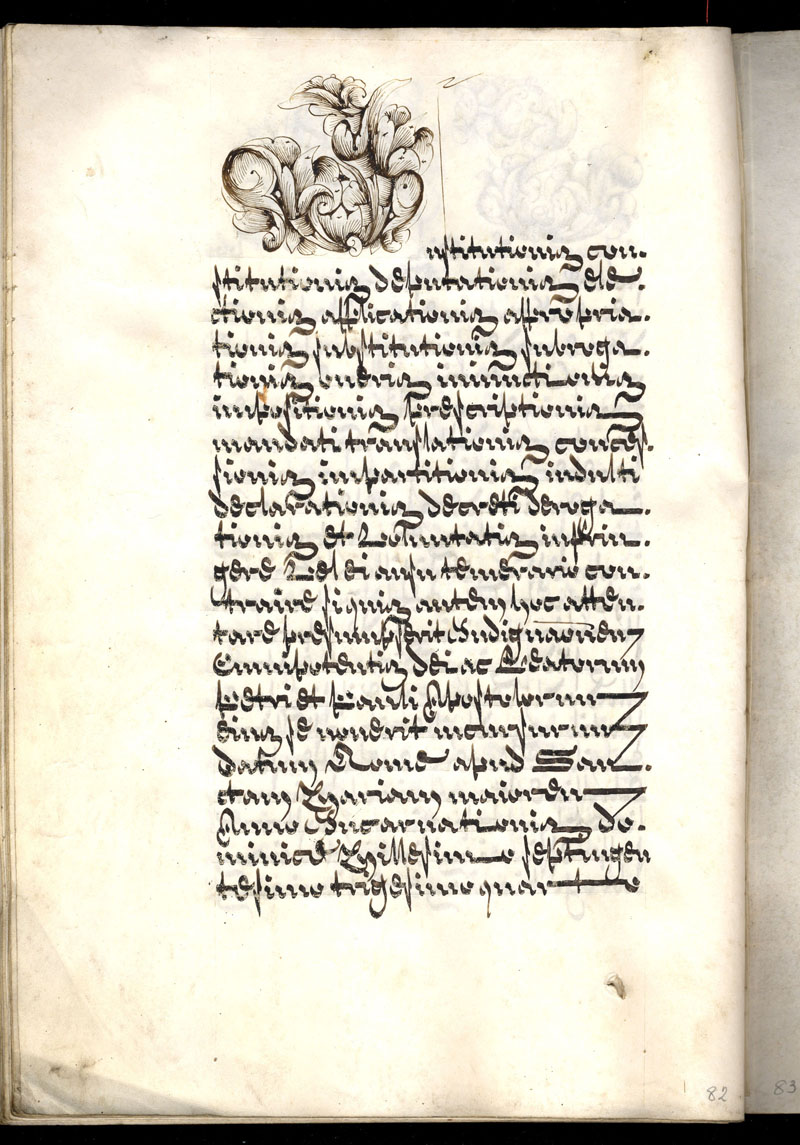 nstitutionis con.
stitutionis deputationis ele.
ctionis applicationis appropria.
tionis substitutionis subroga.
tionis oneris iniunctionis
impositionis prescriptionis
mandati translationis conces.
sionis impartitionis indulti
declarationis decreti deroga.
tionis et Voluntatis infrin.
gere Vel ei ausu temerario con.
traire siquis autem hoc atten.
tare presumpserit Indignaonem
Omnipotentis dei ac Beatorum
Petri et Pauli Apostolorum
eius se noverit incursurum
datum Rome apud San.
ctam Mariam maiorem
Anno Incarnationis do.
minice Millesimo septingen
tesimo trigesimo quarto
82
83